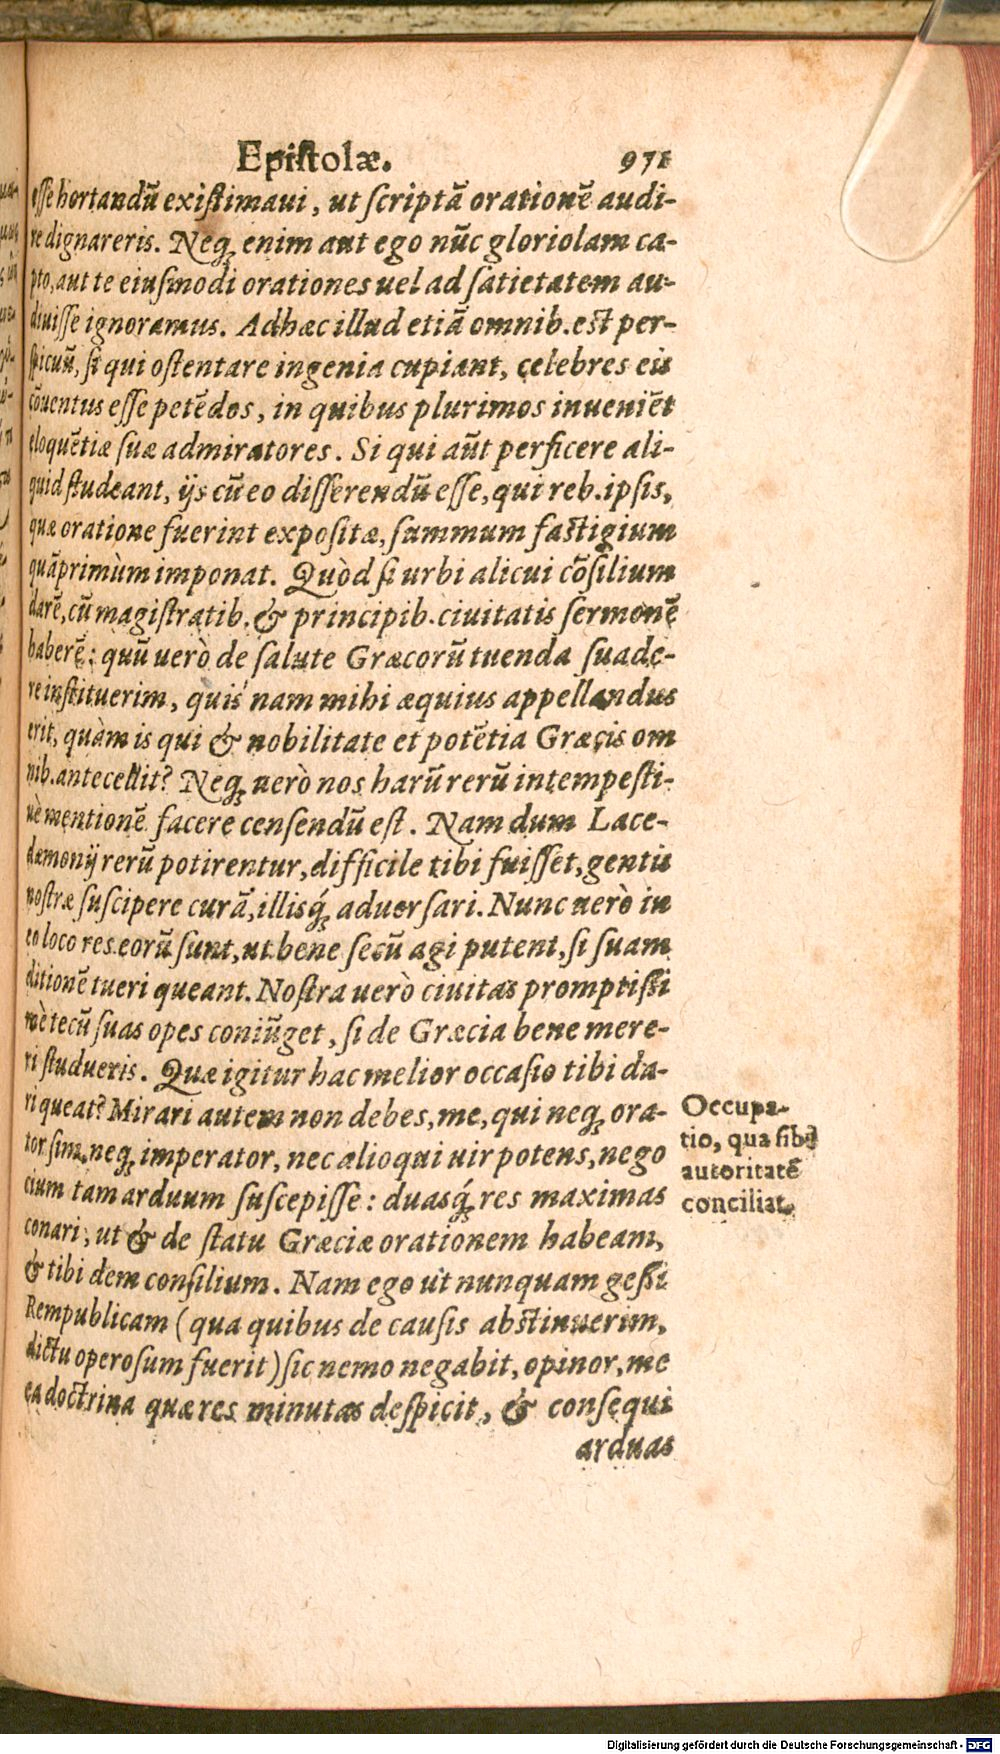 Epistolæ. 971
esse hortandũ existimaui, ut scriptã orationẽ audi-
re dignareris. Neq; enim aut ego nũc gloriolam ca-
pto, aut te eiusmodi orationes uel ad satietatem au-
diuisse ignoramus. Adhæc illud etiã omnib. est per-
spicuũ, si qui ostentare ingenia cupiant, celebres eis
cõuentus esse petẽdos, in quibus plurimos inueniẽt
eloquẽtiæ suæ admiratores. Si qui aũt perficere ali-
quid studeant, ijs cũ eo disserendũ esse, qui reb. ipsis,
quæ oratione fuerint expositæ, summum fastigium
quãprimùm imponat. Quòd si urbi alicui cõsilium
darẽ, cũ magistratib. & principib. ciuitatis sermonẽ
haberẽ: quũ uerò de salute Græcorũ tuenda suade-
re instituerim, quis nam mihi æquius appellandus
erit, quàm is qui & nobilitate et potẽtia Græcis om
nib. antecellit? Neq; uerò nos harũ rerũ intempesti-
uè mentionẽ facere censendũ est. Nam dum Lace-
dæmonij rerũ potirentur, difficile tibi fuisset, gentis
nostræ suscipere curã, illisq́; aduersari. Nunc uerò in
eo loco res eorũ sunt, ut bene secũ agi putent, si suam
ditionẽ tueri queant. Nostra uerò ciuitas promptissi
mè tecũ suas opes coniũget, si de Græcia bene mere-
ri studueris. Quæ igitur hac melior occasio tibi da-
ri queat? Mirari autem non debes, me, qui neq; ora-
tor sim, neq; imperator, nec alioqui uir potens, nego
cium tam arduum suscepisse: duasq́; res maximas
conari, ut & de statu Græciæ orationem habeam,
& tibi dem consilium. Nam ego ut nunquam gessi
Rempublicam (qua quibus de causis abstinuerim,
dictu operosum fuerit) sic nemo negabit, opinor, me
ea doctrina quæ res minutas despicit, & consequi
arduas
Occupa-
tio, qua sibi
autoritatẽ
conciliat.
Digitalisierung gefördert durch die Deutsche Forschungsgemeinschaft - DFG